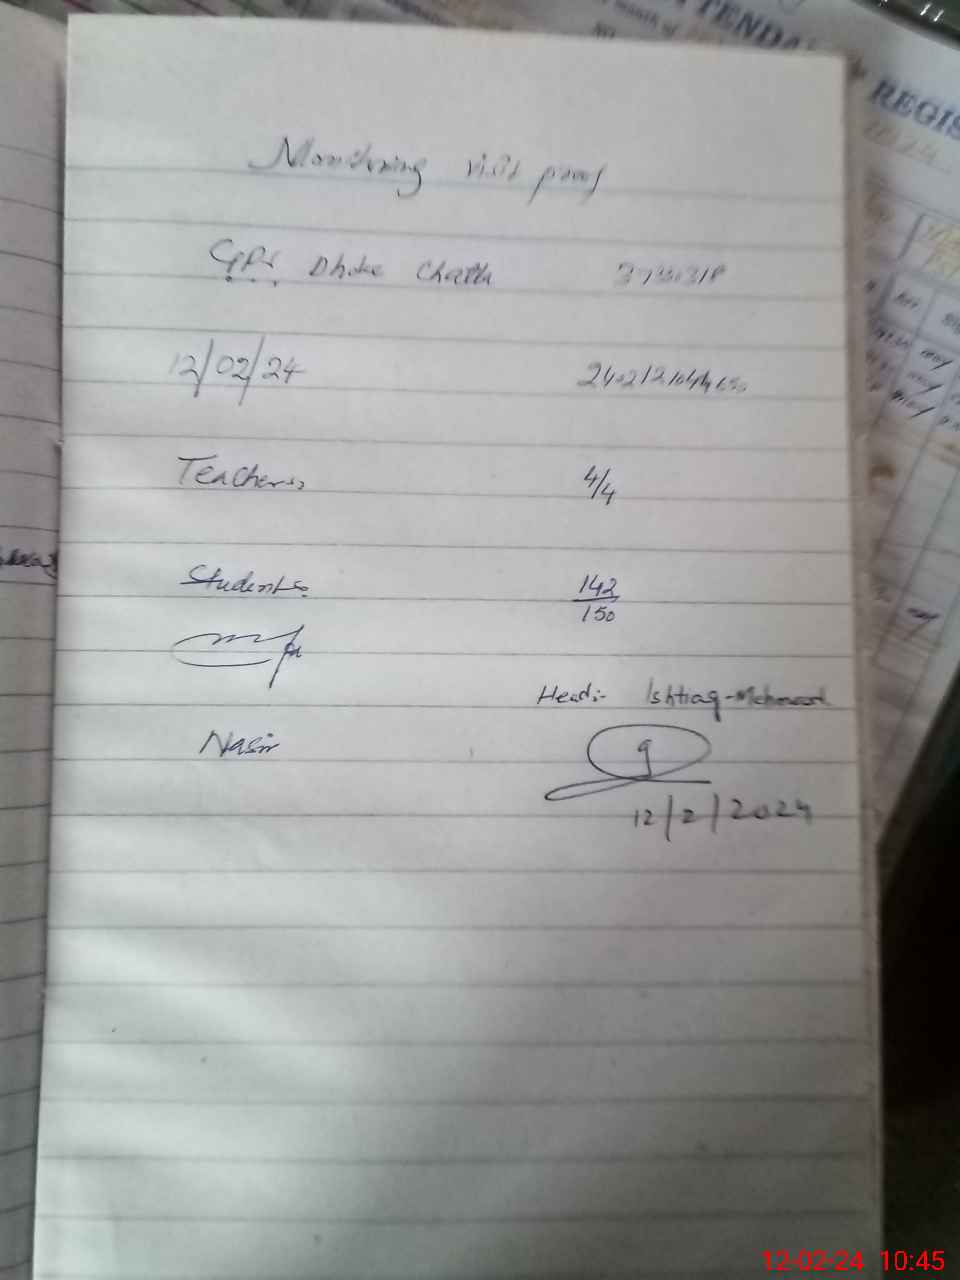 TENDA
REGIS
Monitoring visit proof
GPS Dhoke Chatta
12/02/24
Teachers 4/4
Students 142/150
Head:- Ishtiaq-Mehmood
Nasir
12/2/2024
12-02-24 10:45